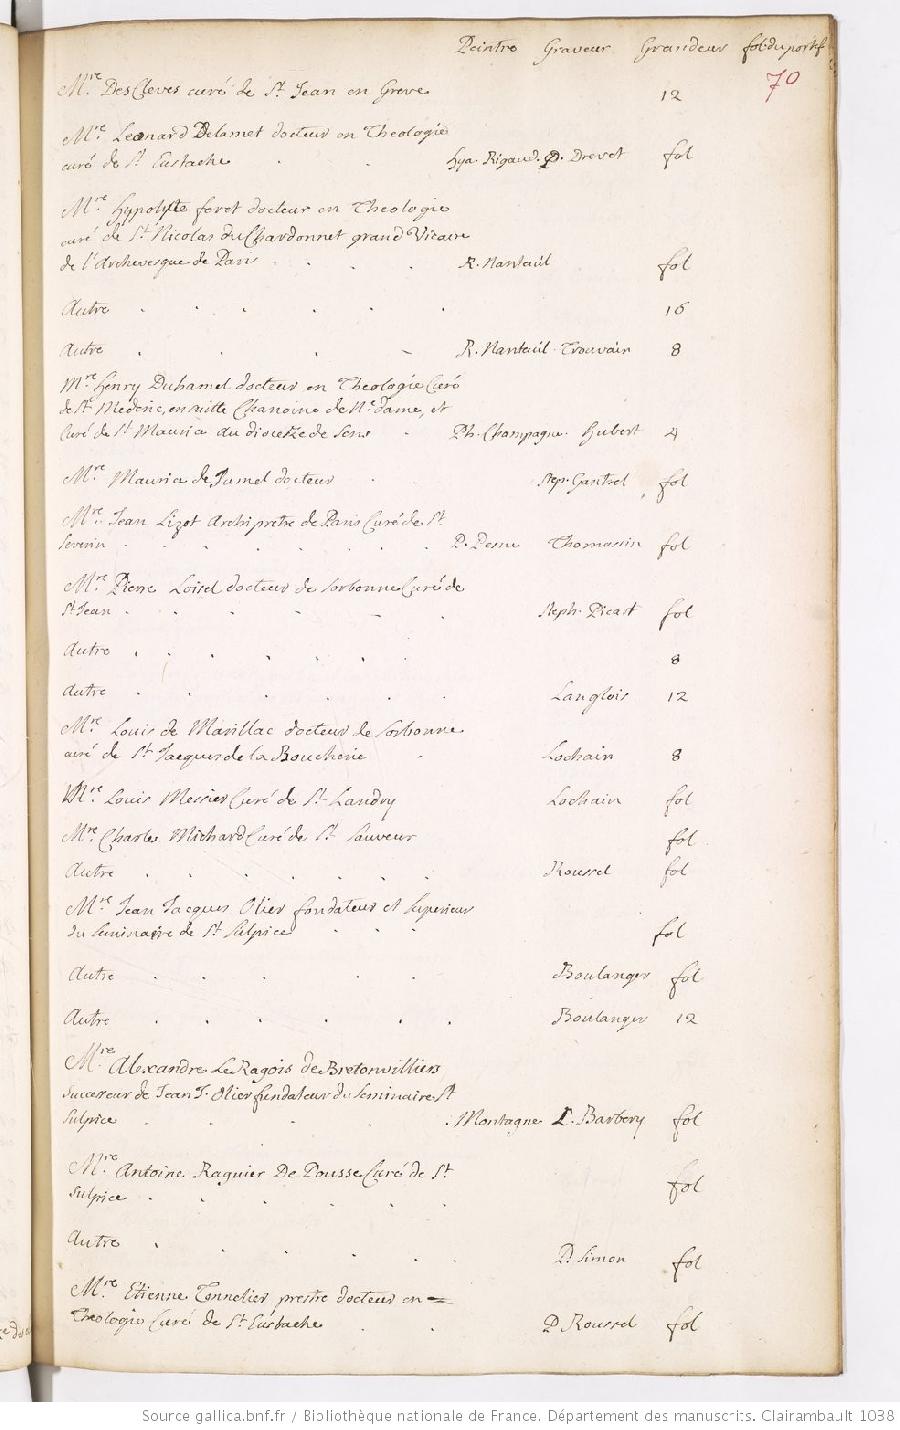 Peintre Graveur Grandeur fol. du portef
70
Mre. Des Cleves curé de St. Jean en Greve 12
Mre. Leonard Delamet docteur en Theologie
curé de St Eustache . . Hya. Rigaud. P. Drevet fol
Mre. Hypolyte feret docteur en Theologie
curé de St Nicolas du Chardonnet grand Vicaire
de l'Archevesque de Paris . . . . R. Nanteuil fol
Autre . . . . . . 16
Autre . . . R. Nanteuil. Trouvain 8
Mre. Henry Duhamel docteur en Theologie Curé
de St Mederic, ensuitte Chanoine de Ne. dame, et
Curé de St Maurice au diocèze de Sens . Ph. Champagne. Hubert 4
Mre. Maurice de Jumel docteur . Step. Gantrel fol
Mre. Jean Lizot Archiprêtre de Paris Curé de St
Severin . . . . . . P. Desne Thomassin fol
Mre. Pierre Loisel docteur de Sorbonne Curé de
St Jean . . . . . . Steph. Picart fol
Autre . . . . . . . 8
Autre . . . . . . Langlois 12
Mre. Louis de Marillac docteur de Sorbonne
curé de St Jacques de la Boucherie . Lochain 8
Mre. Louis Messier Curé de St Landry Lochain fol
Mre. Charles Michard Curé de St Sauveur fol
Autre . . . . . . Roussel fol
Mre. Jean Jacques Olier fondateur et Superieur
du Seminaire de St Sulpice . . . fol
Autre . . . . . Boulanger fol
Autre . . . . . . Boulanger 12
Mre. Alexandre Le Ragois de Bretonvilliers
successeur de Jean J. Olier fundateur du Seminaire St
Sulpice . . . . . Montagne L. Barbery fol
Mre. Antoine Raguier De Pousse Curé de St
Sulpice . . . . . fol
Autre . . . . P. Simon fol
Mre. Etienne Tonnelier prestre docteur en =
Theologie Curé de St Eustache . . P. Roussel fol
Source gallica.bnf.fr / Bibliothèque nationale de France. Département des manuscrits. Clairambault 1038